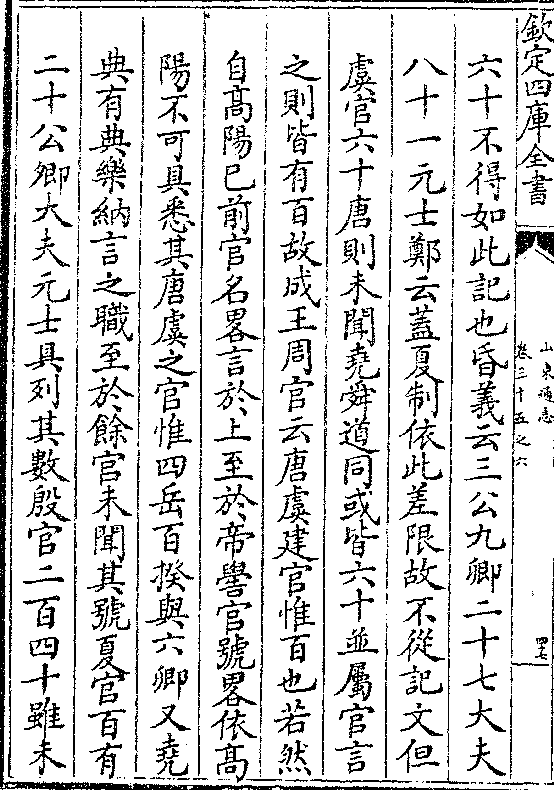 欽定四庫全書
山東通志
卷三十五之六
四七
六十不得如此記也昏義云三公九卿二十七大夫
八十一元士鄭云蓋夏制依此差限故不從記文但
虞官六十唐則未聞堯舜道同或皆六十並屬官言
之則皆有百故成王周官云唐虞建官惟百也若然
自高陽已前官名畧言於上至於帝嚳官號畧依高
陽不可具悉其唐虞之官惟四岳百揆與六卿又堯
典有典樂納言之職至於餘官未聞其號夏官百有
二十公卿大夫元士具列其數殷官二百四十雖未